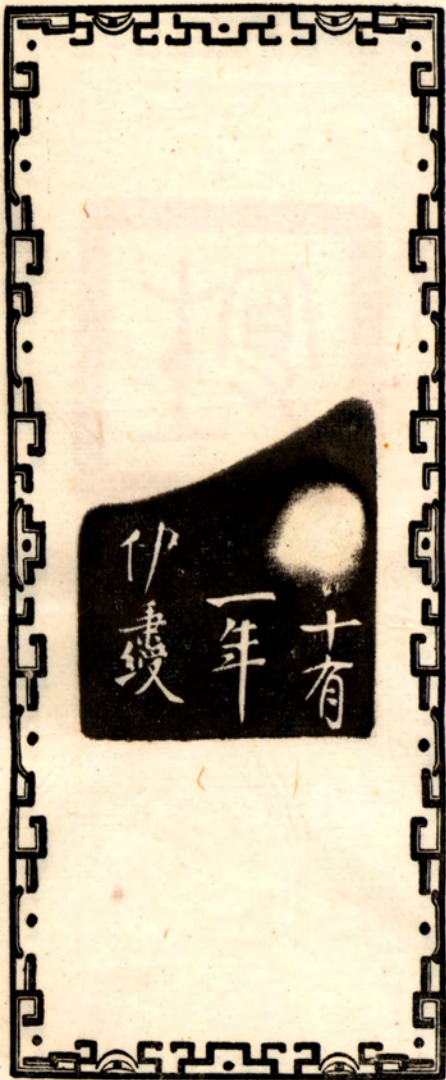 十有
一年
伊秉綬